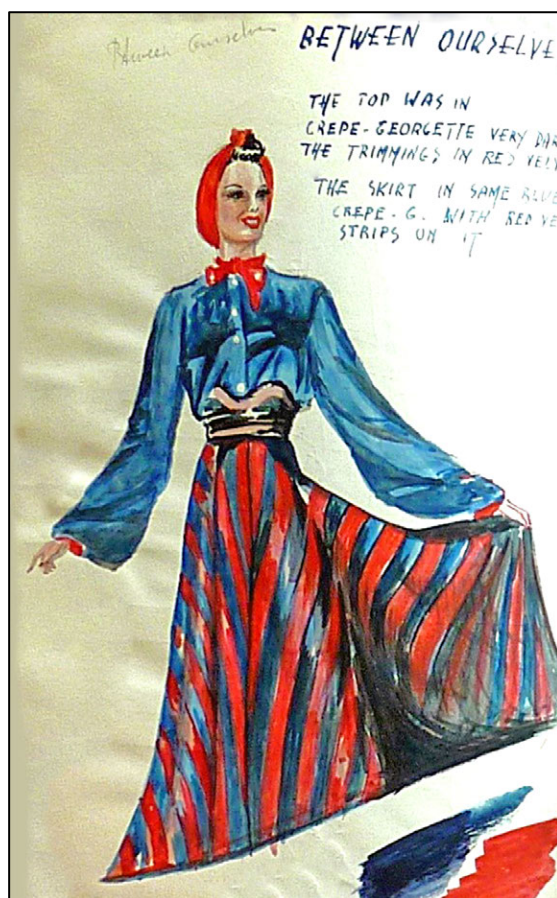 Between Ourselves
BETWEEN OURSELVE
THE TOP WAS IN
CREPE-GEORGETTE VERY DAR
THE TRIMMINGS IN RED VELV
THE SKIRT IN SAME BLUE
CREPE. G. WITH RED VE
STRIPS ON IT